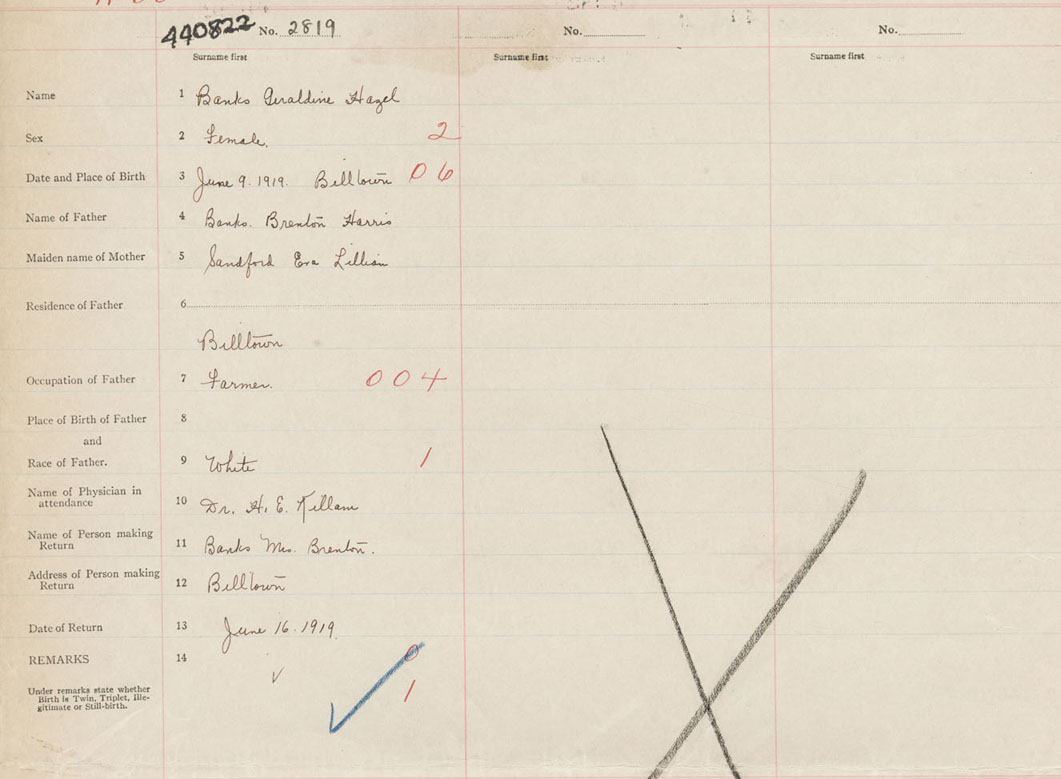 440822 No. 2819 No. No.
Surname first Surname first Surname first
Name 1 Banks Geraldine Hazel
Sex 2 Female. 2
Date and Place of Birth 3 June 9. 1919. Billtown 06
Name of Father 4 Banks. Brenton Harris
Maiden name of Mother 5 Sandford Eva Lillian
Residence of Father 6
Billtown
Occupation of Father 7 Farmer. 004
Place of Birth of Father 8
and
Race of Father. 9 White 1
Name of Physician in
attendance 10 Dr. H. E. Killam
Name of Person making
Return 11 Banks Mrs. Brenton.
Address of Person making
Return 12 Billtown
Date of Return 13 June 16. 1919.
REMARKS 14 0
Under remarks state whether
Birth is Twin, Triplet, Ille-
gitimate or Still-birth. 1